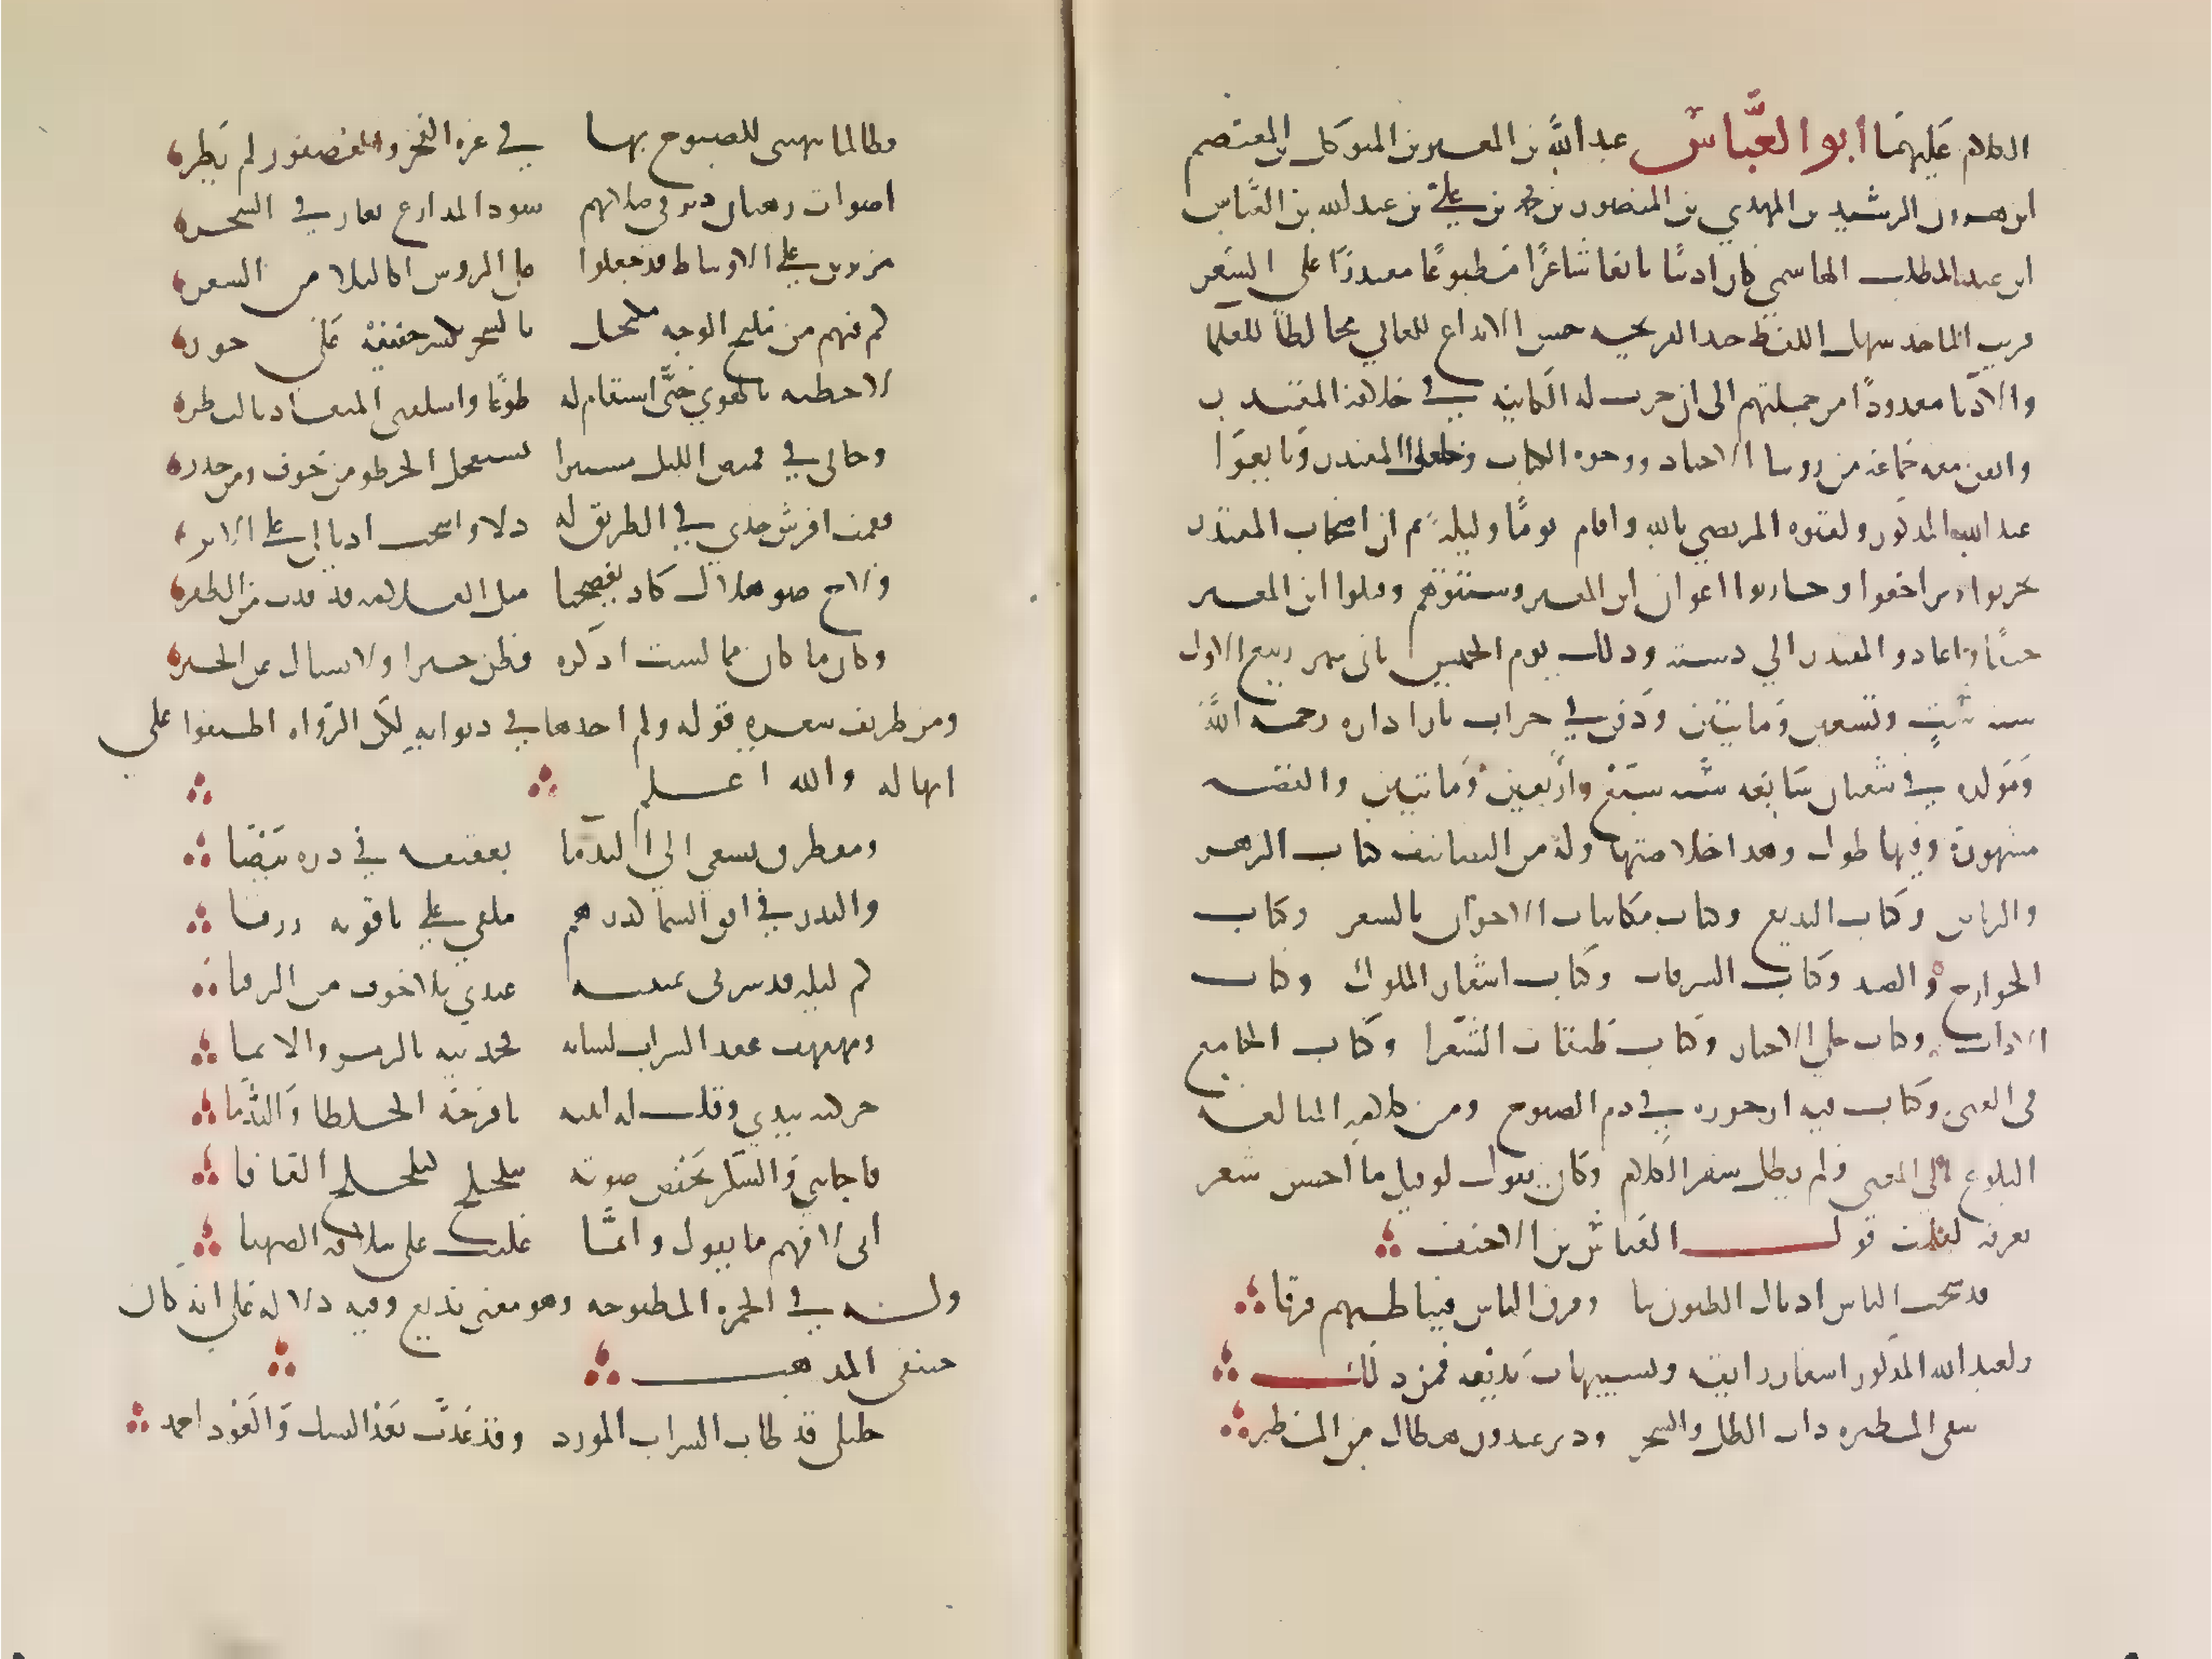 الكلام عليهما ابو العباس عبد الله بن المعتز بن المتوكل بن المعتصم
ابن هرون الرشيد بن المهدي بن المنصور بن محمد بن علي بن عبد الله بن العباس
ابن عبد المطلب الهاشمي كان اديبا بالغا شاعرا مطبوعا مقتدرا على الشعر
قريب الماخذ سهل اللفظ جيد القريحه حسن الابداع للمعاني مخالطا للعلما
والادبا معدودا من جملتهم الى ان جرت له الكاينه في خلافة المقتدر
واتفق معه جماعة من روسا الاجناد ووجوه الكتاب وخلعوا المقتدر وبايعوا
عبد الله المذكور ولقبوه المرتضي بالله واقام يوما وليلة ثم ان اصحاب المقتدر
تحزبوا وتراجعوا وحاربوا اعوان ابن المعتز وشتتوهم وقتلوا ابن المعتز
واعادوا المقتدر الي دسته وذلك يوم الخميس ثاني شهر ربيع الاول
سنه ست وتسعين ومايتين ودفن في خراب بازا داره رحمه الله
ومولده في شعبان سابعه سنه سبع واربعين ومايتين والقضيه
مشهورة وفيها طول وهذا خلاصتها وله من التصانيف كتاب الزهر
والرياض وكتاب البديع وكتاب مكاتبات الاخوان بالشعر وكتاب
الجوارح والصيد وكتاب السرقات وكتاب اشعار الملوك وكتاب
الاداب وكتاب حلي الاخبار وكتاب طبقات الشعرا وكتاب الجامع
في الغنى وكتاب فيه ارجوزه في ذم الصبوح ومن كلامه البلاغه
البلوغ الى المعنى ولم يطل سفر الكلام وكان يقول لو قيل ما احسن شعر
تعرفه لقلت قول العباس بن الاحنف
قد سحب الناس اذيال الظنون بنا وفرق الناس فينا قولهم فرقا
ولعبد الله المذكور اشعار رايقه وتشبيهات بديعه فمن ذلك
سقى المطيره ذات الظل والشجر ودير عبدون هطال من المطر
فطالما نبهتني للصبوح بها في غرة الفجر والعصفور لم يطر
اصوات رهبان دير في صلاتهم سود المدارع نعارين في السحر
مزنرين على الاوساط قد جعلوا على الروس اكاليلا من الشعر
كم فيهم من مليح الوجه مكتحل بالسحر يكسر جفنيه على حور
لاحظته بالهوي حتى استقاد له طوعا واسلفني الميعاد بالنظر
وجاني في قميص الليل مستترا يستعجل الخطو من خوف ومن حذر
فقمت افرش خدي في الطريق له ذلا واسحب اذيالي على الاثر
ولاح ضو هلال كاد يفضحنا مثل القلامه قد قدت من الظفر
وكان ما كان مما لست اذكره فظن خيرا ولا تسال عن الخبر
ومن ظريف شعره قوله ولم اجدها في ديوانه لكن الرواه اطبقوا علي
انها له والله اعلم
ومقرطق يسعى الي الندما بعقيقه في دره بيضا
والبدر في افق السما كدرهم ملقي علي ياقوته زرقا
كم ليله قد سرني بمبيته عندي بلا خوف من الرقبا
ومهفهف عقد الشراب لسانه فحديثه بالرمز والايما
حركته بيدي وقلت له انتبه يا فرحة الخلطا والندما
فاجابني والسكر يخفض صوته بتلجلج كتلجلج الفافا
اني لافهم ما تقول وانما غلبت علي سلافه الصهبا
وله في الخمره المطبوخه وهو معنى بديع وفيه دلاله على انه كان
حنفي المذهب
خليلي قد طاب الشراب المورد وقد عدت بعد النسك والعود احمد